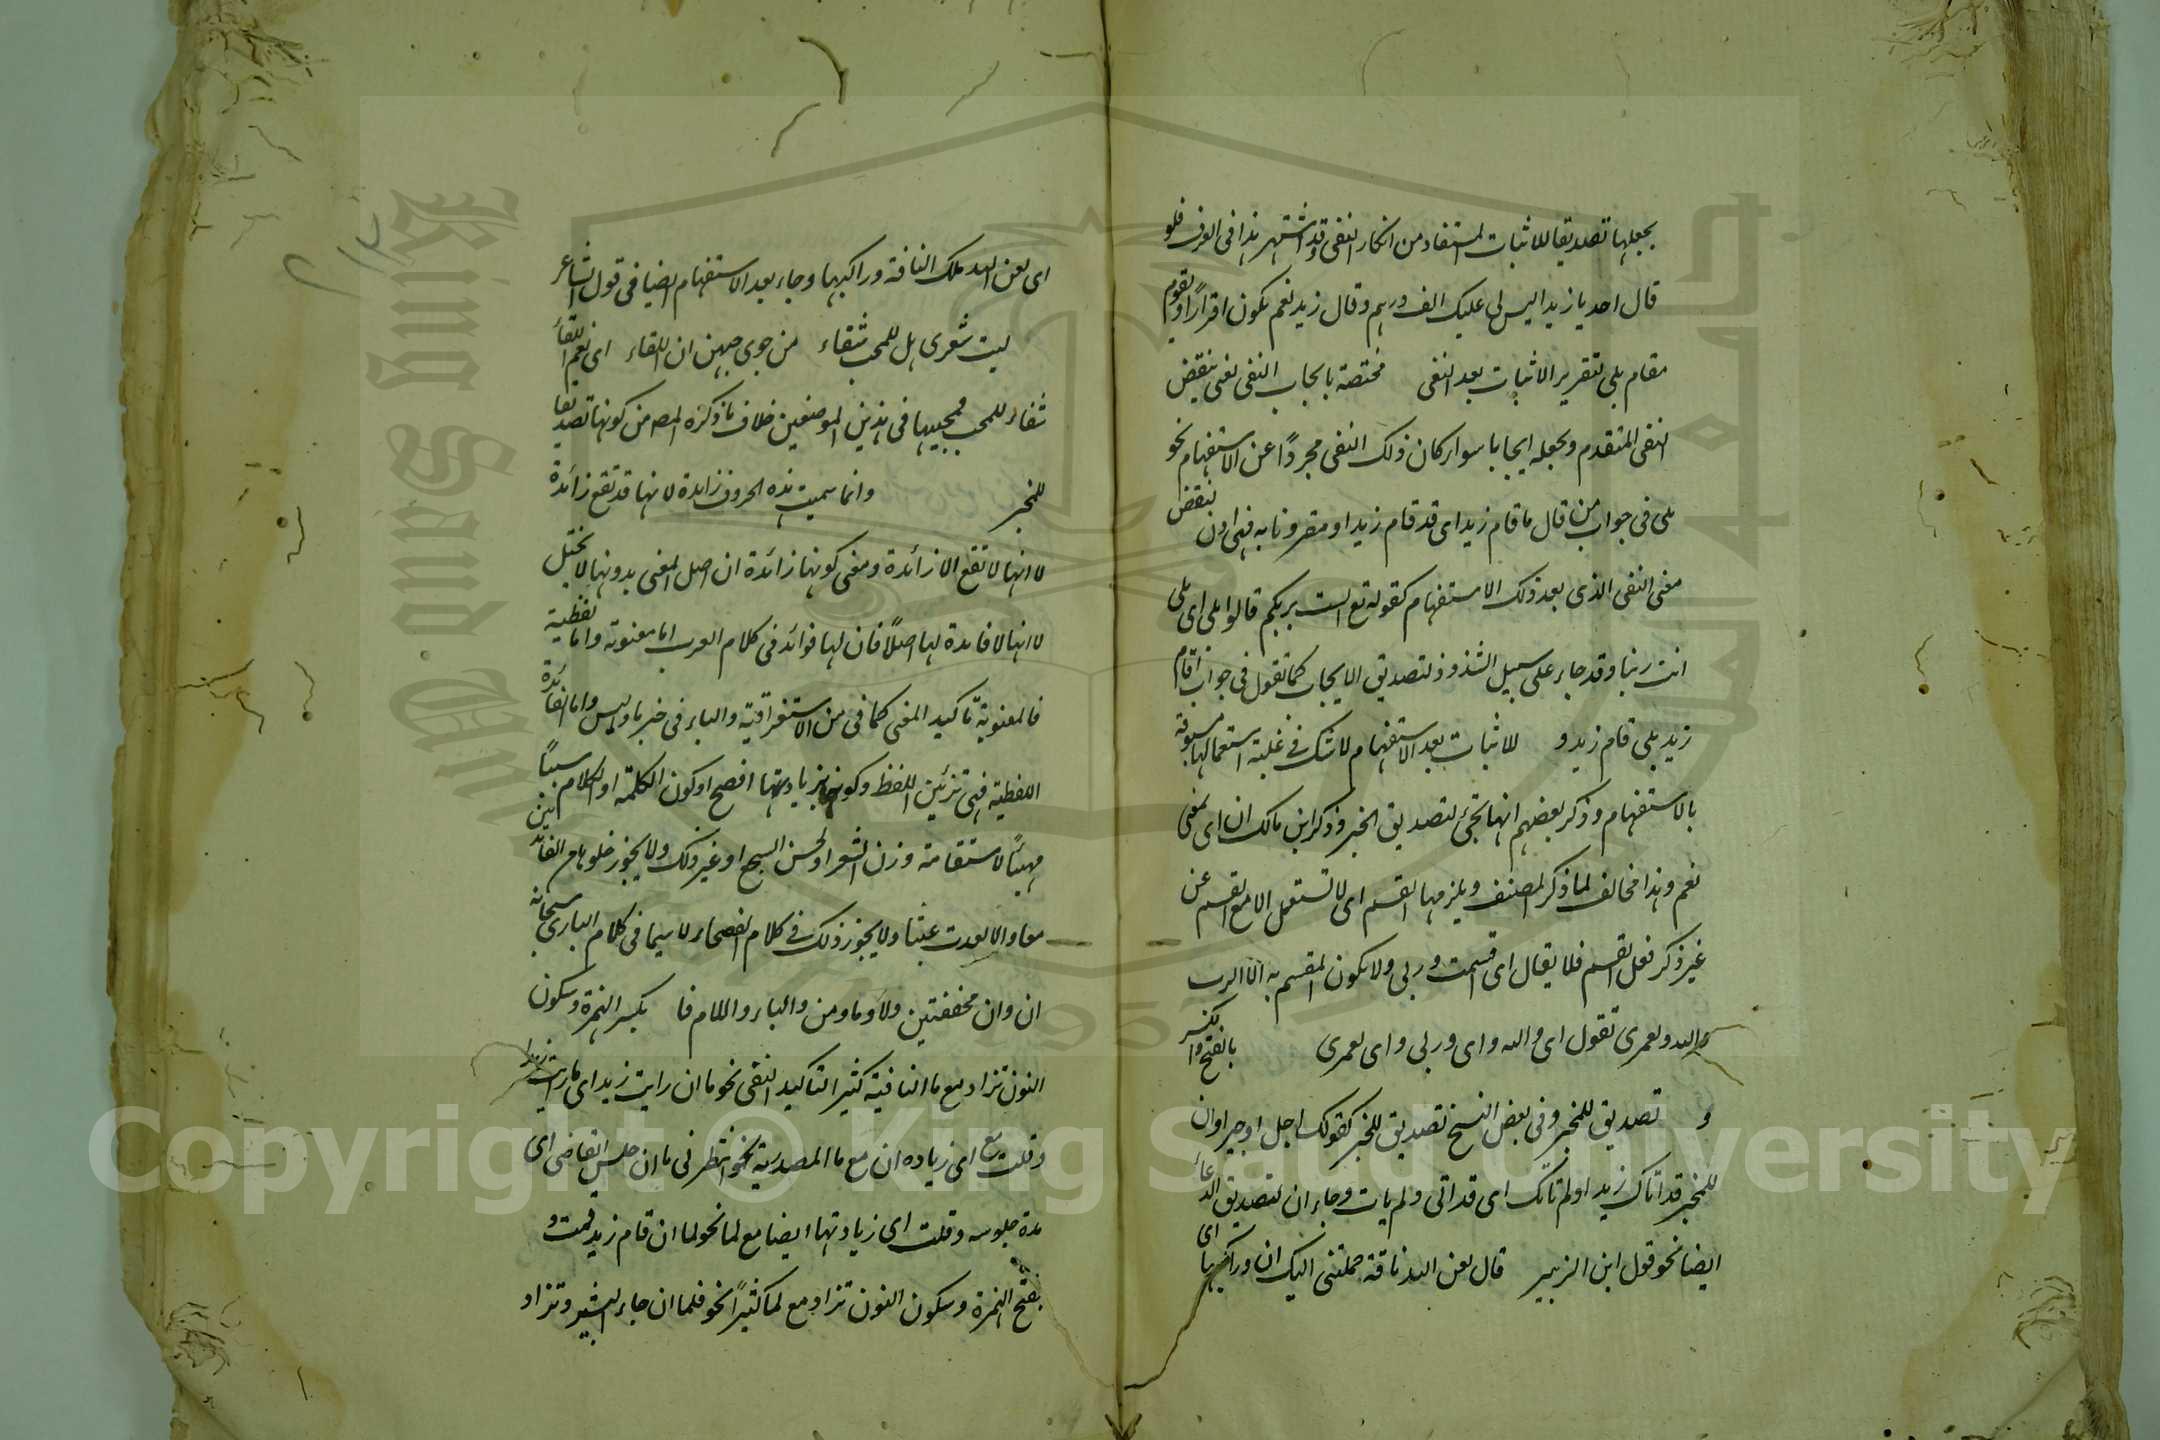 بجعلها تصديقا للاثبات المستفاد من انكار النفى وقد اشتهر هذا فى العرف فلو
قال احد يا زيد اليس لى عليك الف درهم وقال زيد نعم يكون اقرارًا ويقوم
مقام بلى لتقرير الاثبات بعد النفى مختصة بايجاب النفى يعنى ينقض
النفى المتقدم ويجعله ايجابا سواء كان ذلك النفى مجردًا عن الاستفهام نحو
بلى فى جواب من قال ما قام زيد اى قد قام زيد او مقرونا به فهى اذن ينقض
معنى النفى الذى بعد ذلك الاستفهام كقوله تع الست بربكم قالوا بلى اى بلى
انت ربنا وقد جاء على سبيل الشذوذ لتصديق الايجاب كما تقول فى جواب اقام
زيد بلى قام زيد و للاثبات بعد الاستفهام لا شك فى غلبة استعمالها مسبوقة
بالاستفهام وذكر بعضهم انها تجئ لتصديق الخبر وذكر ابن مالك ان اى بمعنى
نعم وهذا مخالف لما ذكر المصنف ويلزمها القسم اى لا تستعمل الا مع القسم عن
غير ذكر فعل القسم فلا يقال اى قسمت وربى ولا يكون المقسم به الا الرب
والله ولعمرى تقول اى والله واى وربى واى لعمرى بالفتح والكسر
و تصديق للمخبر وفى بعض النسخ تصديق للخبر كقولك اجل او جير او ان
للمخبر قد اتاك زيد او لم تاتك اى قد اتى ولم يات وجاء ان لتصديق الدعاء
ايضا نحو قول ابن الزبير قال لعن الله ناقة حملتنى اليك ان وراكبها اى
اى لعن الله تلك الناقة وراكبها وجاء بعد الاستفهام ايضا فى قول الشاعر
ليت شعرى هل للمحب شفاء من جوى حبهن ان اللقاء اى نعم اللقاء
شفاء للمحب فمجيبها فى هذين الموضعين خلاف ما ذكره المصه من كونها تصديقا
للمخبر وانما سميت هذه الحروف زايدة لانها قد تقع زائدة
لا انها لا تقع الا زائدة ومعنى كونها زائدة ان اصل المعنى بدونها لا يختل
لا انها لا فايدة لها اصلًا فان لها فوائد فى كلام العرب اما معنوية واما لفظية
فالمعنوية تاكيد المعنى كما فى من الاستغراقية والباء فى خبر ما وليس واما الفائدة
اللفظية فهى تزئين اللفظ وكونه بزيادتها افصح او كون الكلمة او الكلام سببًا
مهيئًا لاستقامة وزن الشعر او لحسن السجع او غير ذلك ولا يجوز خلوها من الفائدتين
معا والا لعدت عبثا ولا يجوز ذلك فى كلام الفصحاء لا سيما فى كلام البارى سبحانه
ان وان مخففتين ولا وما ومن والباء واللام فا بكسر الهمزة وسكون
النون تزاد مع ما النافية كثير التاكيد النفى نحو ما ان رايت زيد اى ما رايت زيدا
وقلت مع اى زيادة ان مع ما المصدرية نحو انتظرنى ما ان جلس القاضى اى
مدة جلوسه وقلت اى زيادتها ايضا مع لما نحو لما ان قام زيد قمت و
بفتح الهمزة وسكون النون تزاد مع لما كثيرًا نحو فلما ان جاء البشير وتزاد
٢١٢
Copyright © King Saud University
King Saud University
1957